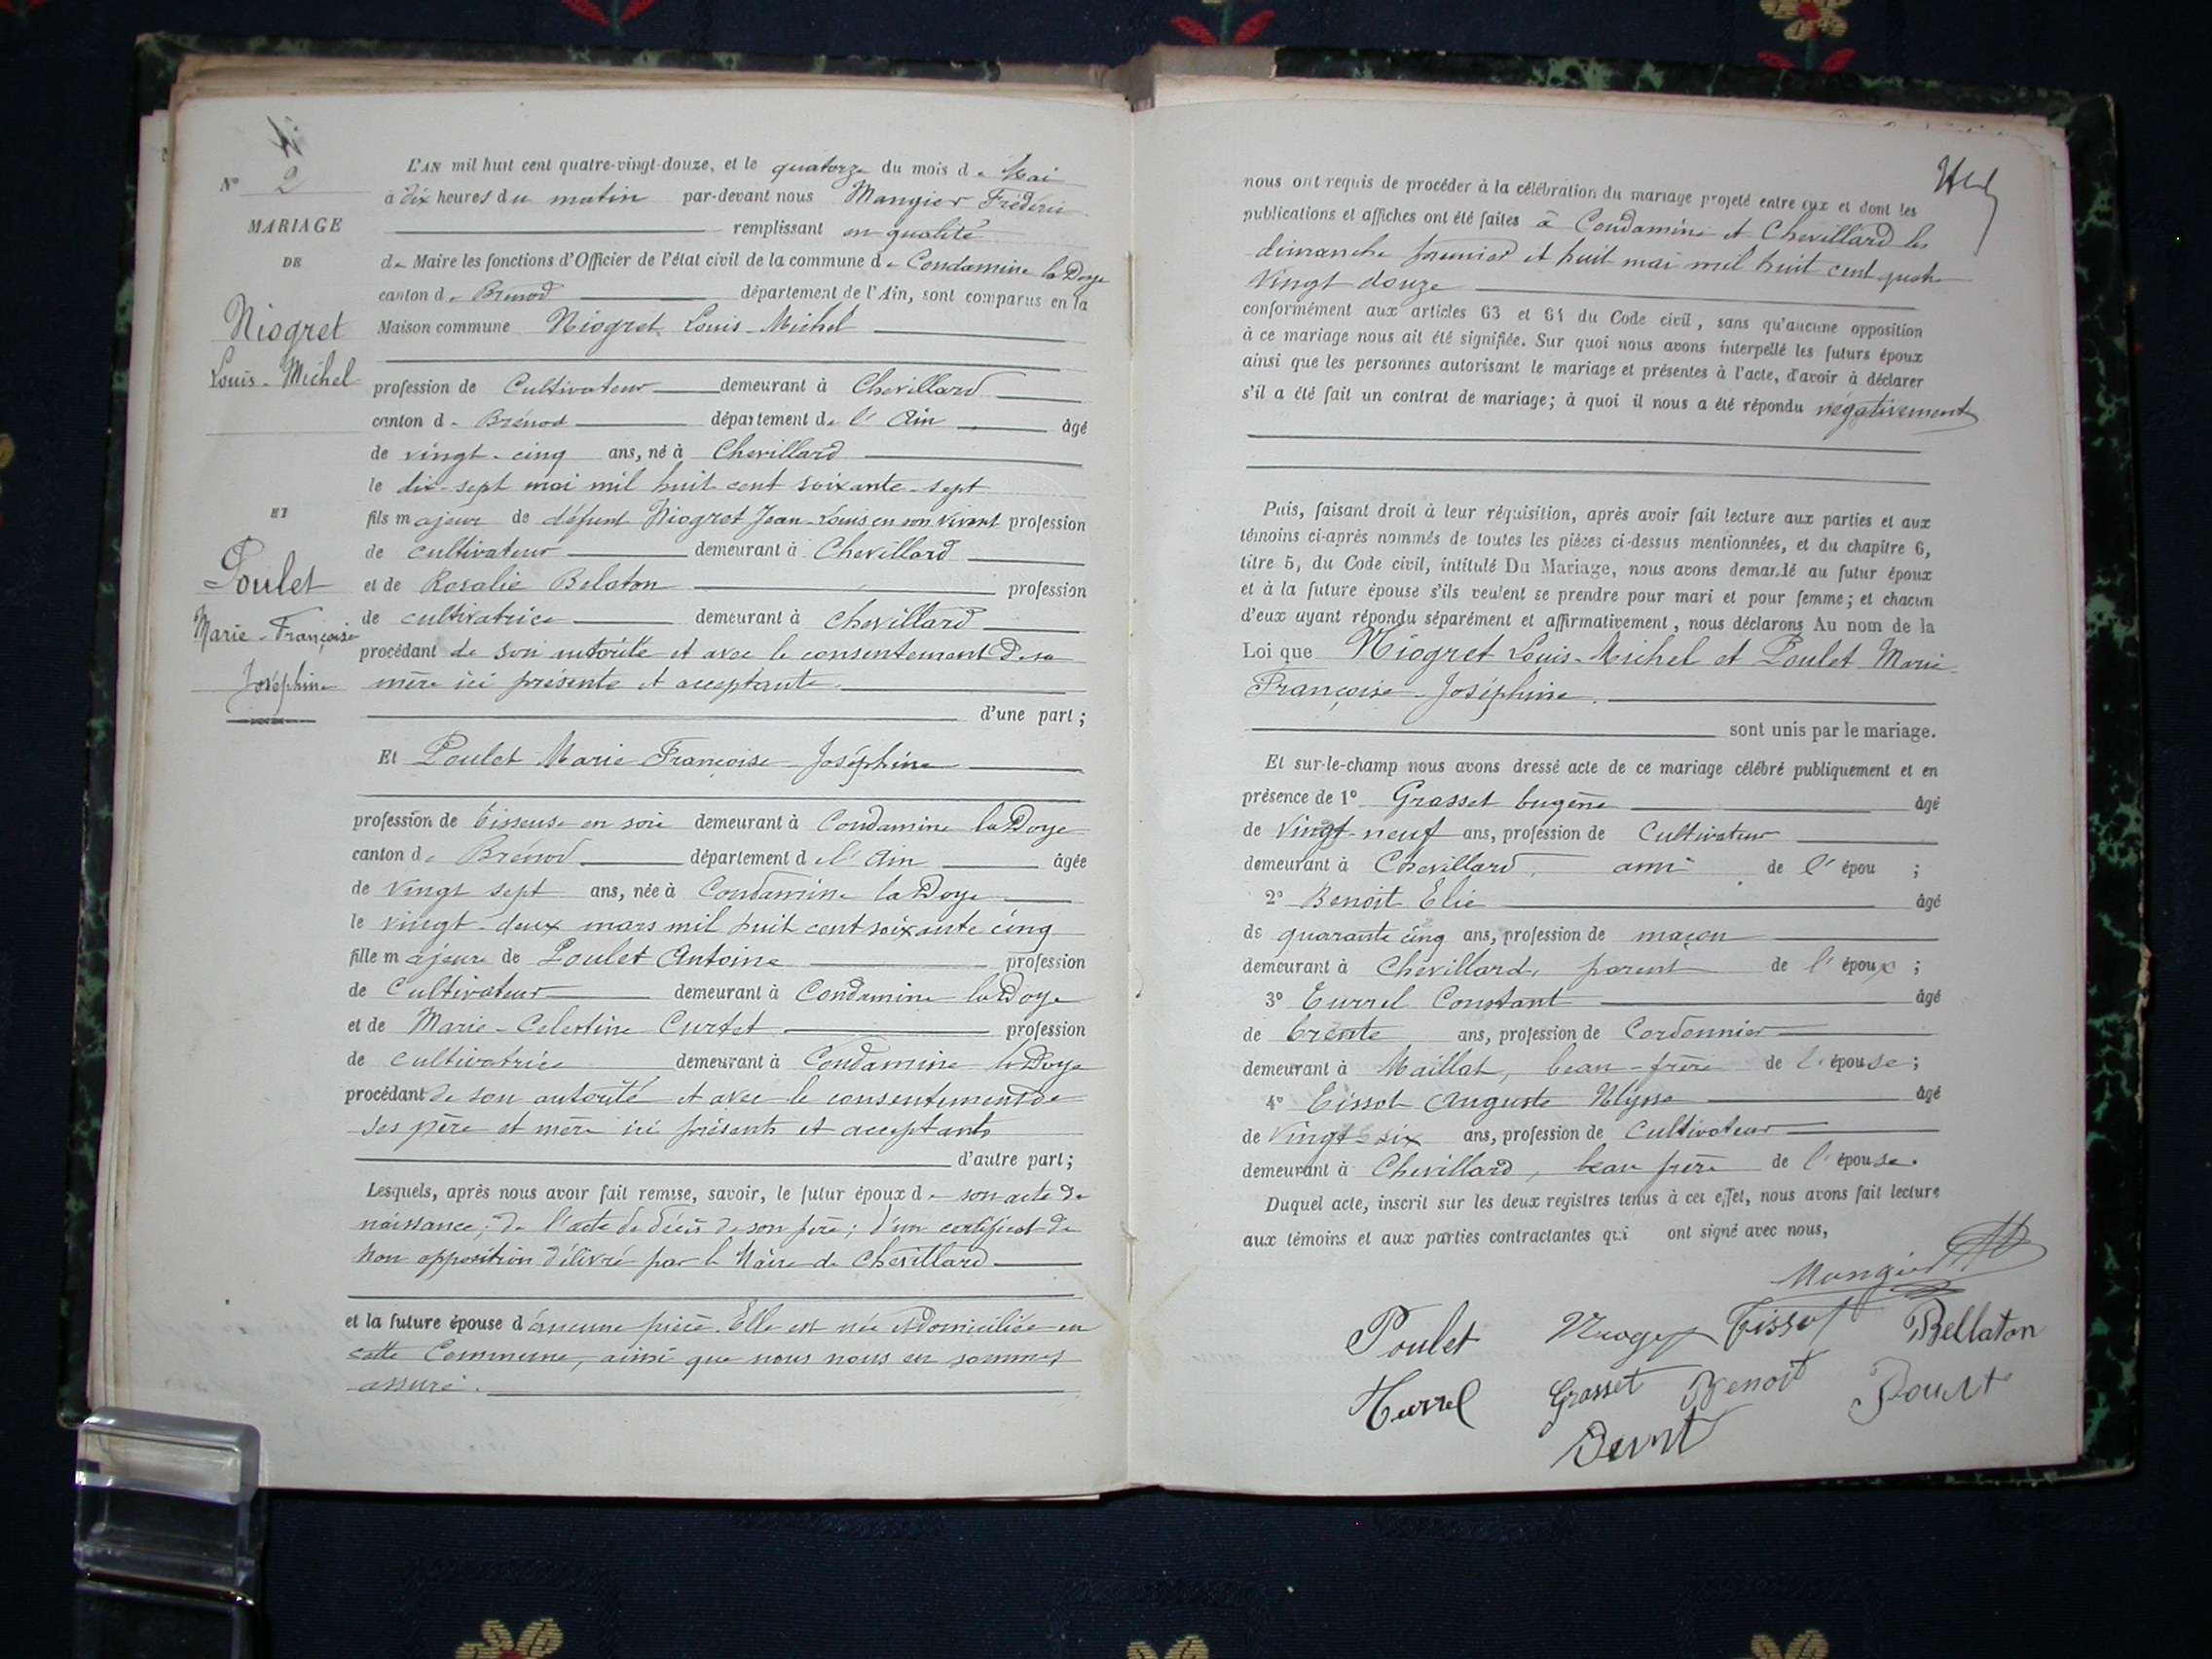 N° 2
MARIAGE
DE
Niogret
Louis-Michel
ET
Poulet
Marie-Françoise
Joséphine
L'AN mil huit cent quatre-vingt-douze, et le quatorze du mois de Mai
à dix heures du matin par-devant nous Mangier Frédéric
remplissant en qualité
de Maire les fonctions d'Officier de l'état civil de la commune de Condamine la Doye
canton de Brénod département de l'Ain, sont comparus en la
Maison commune Niogret Louis-Michel
profession de Cultivateur demeurant à Chevillard
canton de Brénod département de l'Ain âgé
de vingt-cinq ans, né à Chevillard
le dix-sept mai mil huit cent soixante-sept
fils majeur de défunt Niogret Jean-Louis en son vivant profession
de cultivateur demeurant à Chevillard
et de Rosalie Belaton profession
de cultivatrice demeurant à Chevillard
procédant de son autorité et avec le consentement de sa
mère ici présente et acceptante.
d'une part;
Et Poulet Marie Françoise Joséphine
profession de tisseuse en soie demeurant à Condamine la Doye
canton de Brénod département de l'Ain âgée
de vingt sept ans, née à Condamine la Doye
le vingt-deux mars mil huit cent soixante cinq
fille majeure de Poulet Antoine profession
de Cultivateur demeurant à Condamine la Doye
et de Marie-Celestine Curtet profession
de cultivatrice demeurant à Condamine la Doye
procédant de son autorité et avec le consentement de
ses père et mère ici présents et acceptants
d'autre part;
Lesquels, après nous avoir fait remise, savoir, le futur époux de son acte de
naissance; de l'acte de décès de son père; d'un certificat de
non opposition délivré par le Maire de Chevillard
et la future épouse d'aucune pièce. Elle est née et domiciliée en
cette Commune, ainsi que nous nous en sommes
assuré.
nous ont requis de procéder à la célébration du mariage projeté entre eux et dont les
publications et affiches ont été faites à Condamine et Chevillard les
dimanche premier et huit mai mil huit cent quatre
vingt douze
conformément aux articles 63 et 64 du Code civil, sans qu'aucune opposition
à ce mariage nous ait été signifiée. Sur quoi nous avons interpellé les futurs époux
ainsi que les personnes autorisant le mariage et présentes à l'acte, d'avoir à déclarer
s'il a été fait un contrat de mariage; à quoi il nous a été répondu négativement
Puis, faisant droit à leur réquisition, après avoir fait lecture aux parties et aux
témoins ci-après nommés de toutes les pièces ci-dessus mentionnées, et du chapitre 6,
titre 5, du Code civil, intitulé Du Mariage, nous avons demandé au futur époux
et à la future épouse s'ils veulent se prendre pour mari et pour femme; et chacun
d'eux ayant répondu séparément et affirmativement, nous déclarons Au nom de la
Loi que Niogret Louis-Michel et Poulet Marie
Françoise-Joséphine.
sont unis par le mariage.
Et sur-le-champ nous avons dressé acte de ce mariage célébré publiquement et en
présence de 1° Grasset Eugène âgé
de vingt-neuf ans, profession de Cultivateur
demeurant à Chevillard, ami de l'épou ;
2° Benoit Elie âgé
de quarante cinq ans, profession de maçon
demeurant à Chevillard, parent de l'époux ;
3° Turrel Constant âgé
de trente ans, profession de Cordonnier
demeurant à Maillat, beau-frère de l'épouse;
4° Tissot Auguste Ulysse âgé
de vingt-six ans, profession de Cultivateur
demeurant à Chevillard, beau frère de l'épouse.
Duquel acte, inscrit sur les deux registres tenus à cet effet, nous avons fait lecture
aux témoins et aux parties contractantes qui ont signé avec nous,
Mangier
Poulet Tissot Bellaton
Turrel Grasset Benoit